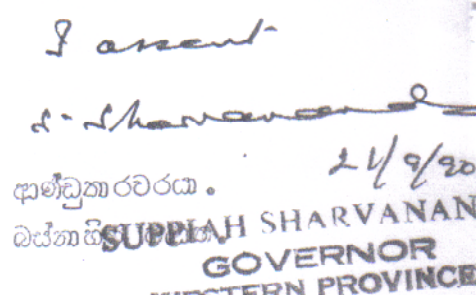 I assent
S. Sharvananda
21/9/90
ආණ්ඩුකාරවරයා.
SUPPIAH SHARVANAN
GOVERNOR
WESTERN PROVINCE